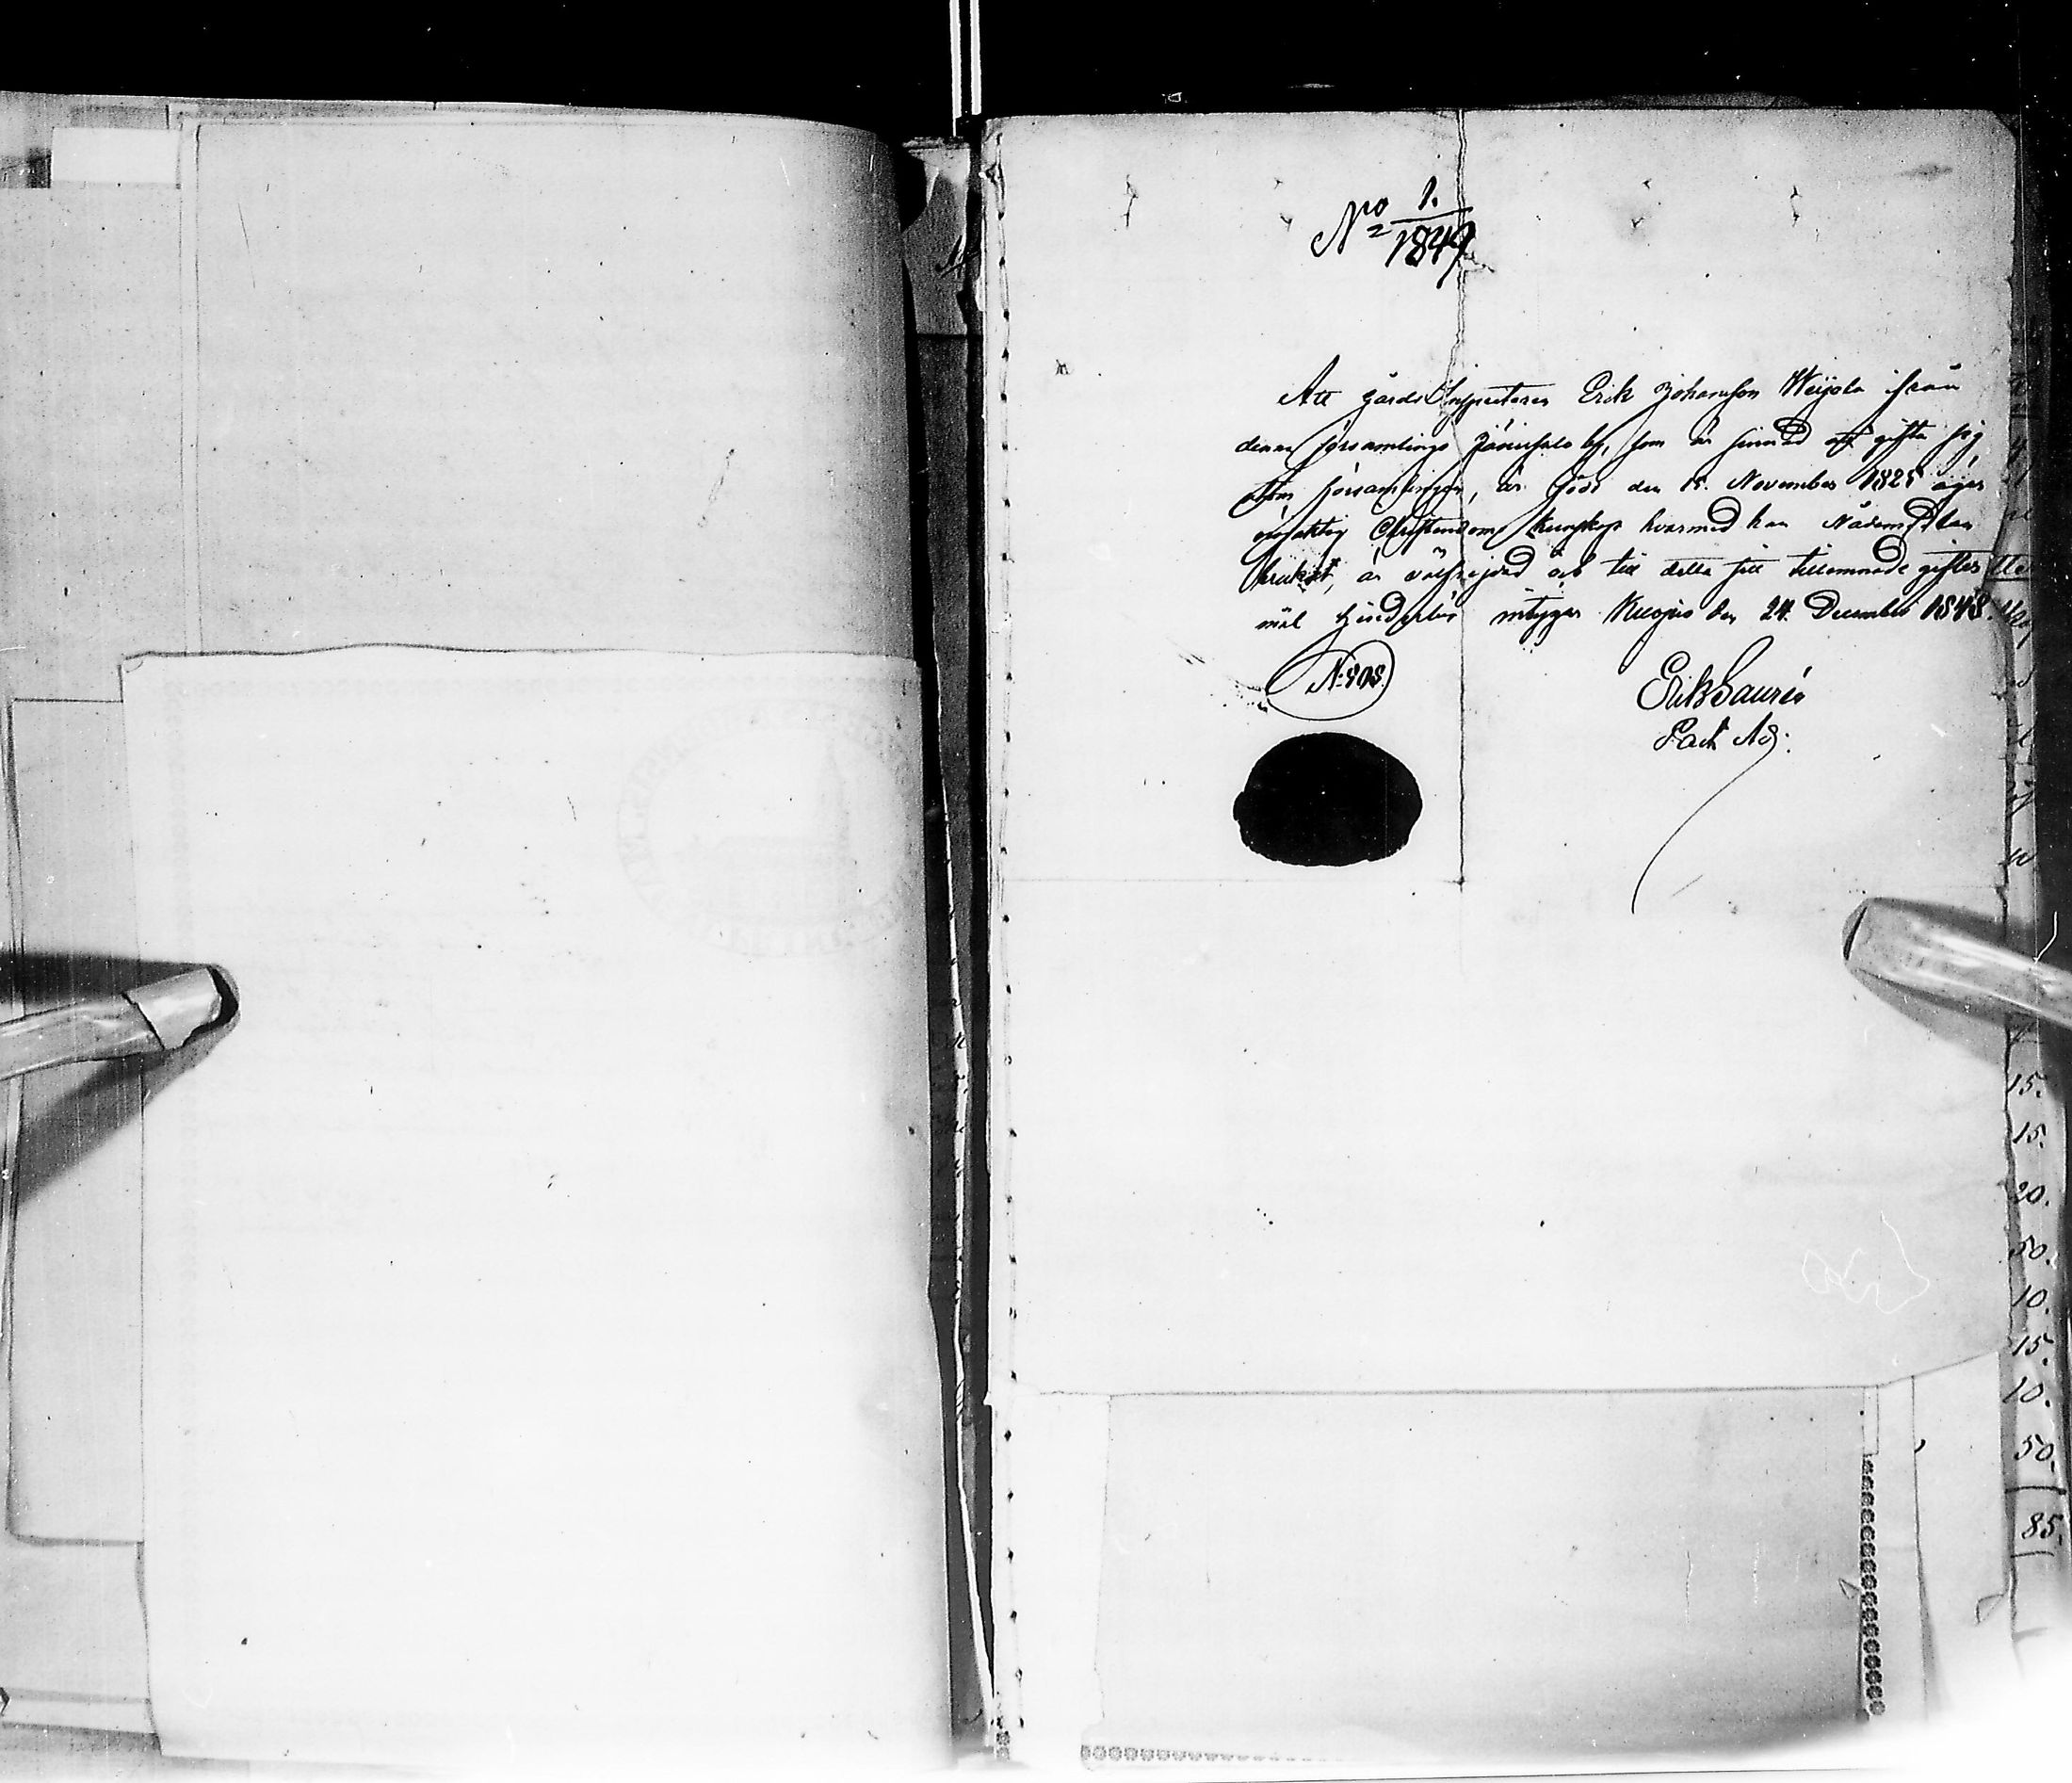 No 1.
1849
Att gårds Inspectoren Erik Johansson Weijola ifrån
denna församlings Jännesalo by, som är sinnad att gifta sig
utom församlingen, är född den 15. November 1825 äger
försvarlig Christendoms kunskap hvarmed han Nådemedlen
brukat, är välfrejdad och till detta sitt tillernade gifter
mål hinderlös intygar Kuopio den 24. December 1848.
N:908.
Erik
Past. Adj.
15.
15.
20.
50.
10.
15.
10.
50.
85.